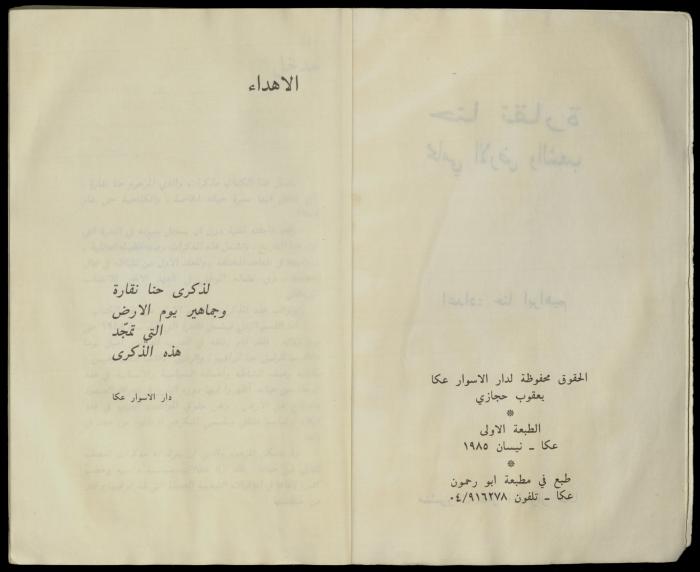 الحقوق محفوظة لدار الاسوار عكا
يعقوب حجازي
*
الطبعة الاولى
عكا ــ نيسان ١٩٨٥
*
طبع في مطبعة ابو رحمون
عكا ــ تلفون ٠٤/٩١٦٢٧٨
الاهداء
لذكرى حنا نقارة
وجماهير يوم الارض
التي تمجّد
هذه الذكرى
دار الاسوار عكا